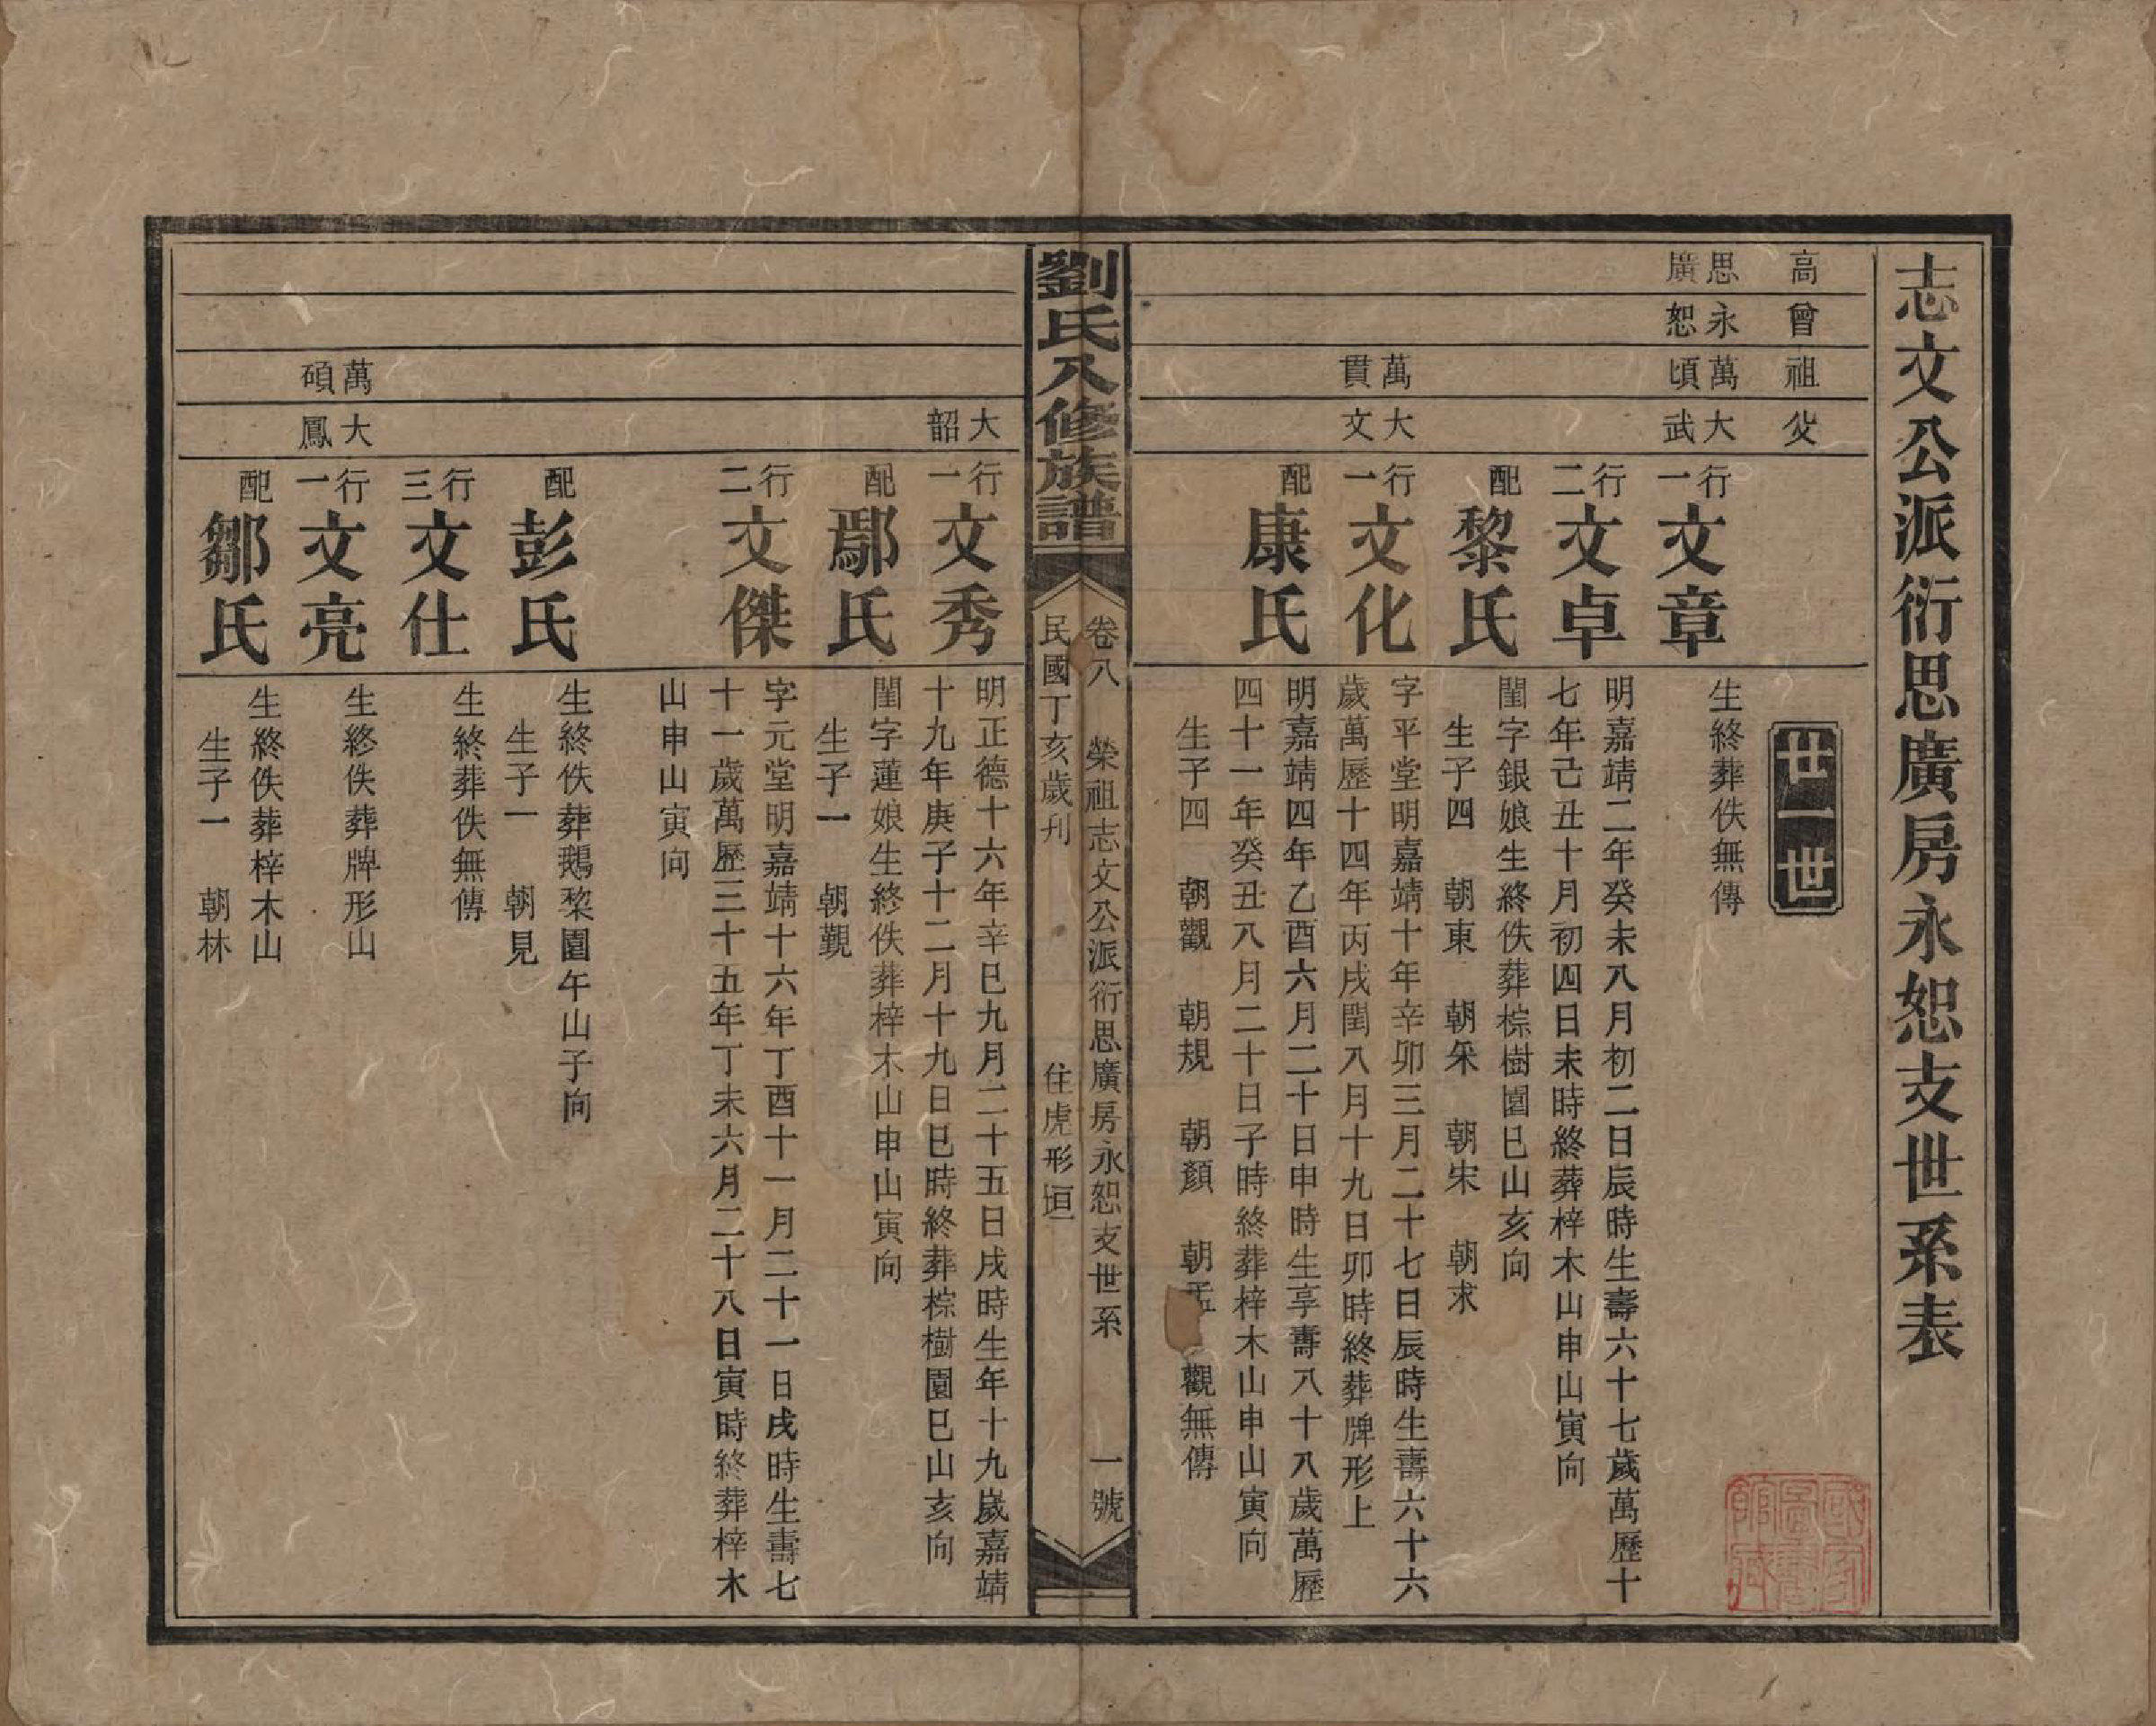 志文公派衍思廣房永恕支世系表
高
曾
祖
父
世一世
思廣
永恕
萬頃
大武
行一
文章
生終葬佚無傳
行二
文卓
明嘉靖二年癸未八月初二日辰時生壽六十七歲萬歷十
七年己丑十月初四日未時終葬梓木山申山寅向
配
黎氏
閨字銀娘生終佚葬棕樹園巳山亥向
生子四 朝東 朝采 朝宋 朝求
萬貫
大文
行一
文化
字平堂明嘉靖十年辛卯三月二十七日辰時生壽六十六
歲萬歷十四年丙戌閏八月十九日卯時終葬牌形上
配
康氏
明嘉靖四年乙酉六月二十日申時生享壽八十八歲萬歷
四十一年癸丑八月二十日子時終葬梓木山申山寅向
生子四 朝觀 朝規 朝顏 朝孟 觀無傳
劉氏八修族譜
卷八 榮祖志文公派衍思廣房永恕支世系 一號
民國丁亥歲刊 住虎形垣
大韶
行一
文秀
明正德十六年辛巳九月二十五日戌時生年十九歲嘉靖
十九年庚子十二月十九日巳時終葬棕樹園巳山亥向
配
鄢氏
閨字蓮娘生終佚葬梓木山申山寅向
生子一 朝覲
行二
文傑
字元堂明嘉靖十六年丁酉十一月二十一日戌時生壽七
十一歲萬歷三十五年丁未六月二十八日寅時終葬梓木
山申山寅向
配
彭氏
生終佚葬鵝棃園午山子向
生子一 朝見
行三
文仕
生終葬佚無傳
萬碩
大鳳
行一
文亮
生終佚葬牌形山
配
鄒氏
生終佚葬梓木山
生子一 朝林